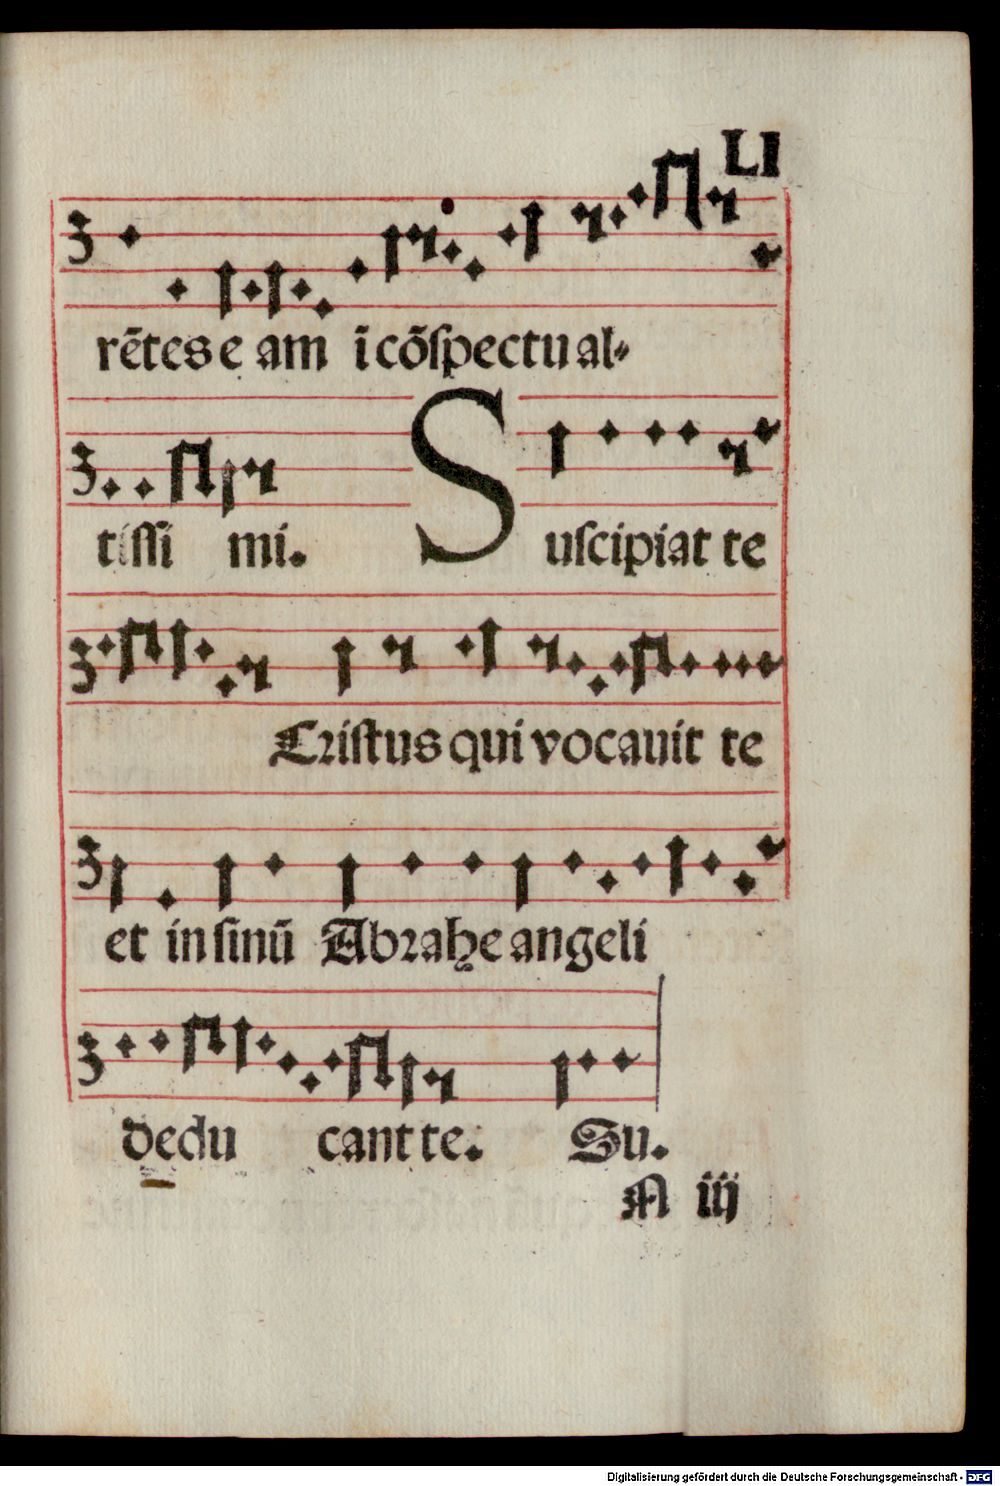 LI
rẽtes e am ĩ cõſpectu al⸗
tiſſi mi. Suſcipiat te
Criſtus qui vocauit te
et in ſinũ Abrahe angeli
dedu cant te. Su.
M iij
Digitalisierung gefördert durch die Deutsche Forschungsgemeinschaft - DFG